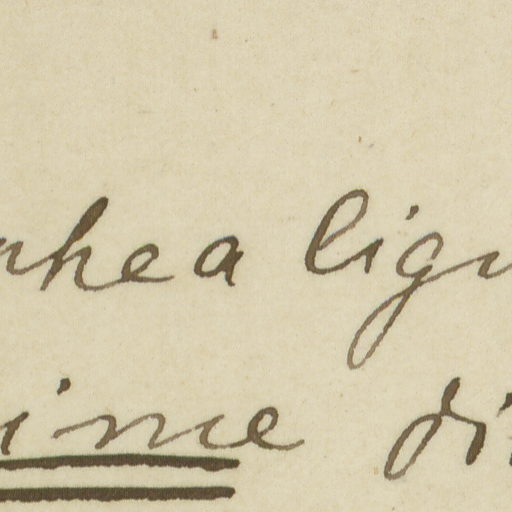 nhea lign
ime di